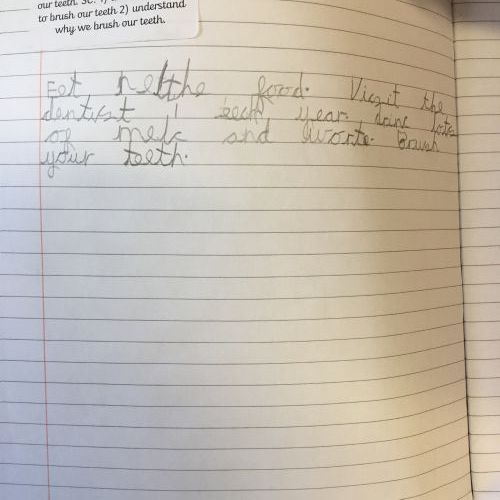 our teeth. SC: 1)
to brush our teeth 2) understand
why we brush our teeth.
Eet helthe food. Visit the
dentist 1 eech year. danc lots
of melc and worte. Brush
your teeth.